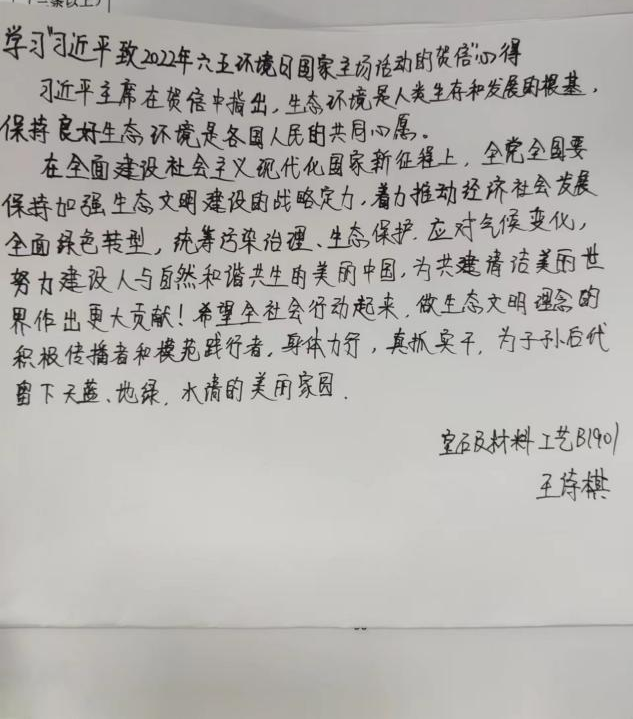 (三条以上)
学习"习近平致2022年六五环境日国家主场活动的贺信"心得
习近平主席在贺信中指出,生态环境是人类生存和发展的根基,
保持良好生态环境是各国人民的共同心愿。
在全面建设社会主义现代化国家新征程上,全党全国要
保持加强生态文明建设的战略定力,着力推动经济社会发展
全面绿色转型,统筹污染治理、生态保护、应对气候变化,
努力建设人与自然和谐共生的美丽中国,为共建清洁美丽世
界作出更大贡献!希望全社会行动起来,做生态文明理念的
积极传播者和模范践行者,身体力行,真抓实干,为子孙后代
留下天蓝、地绿、水清的美丽家园.
宝石及材料工艺B1901
王诗棋